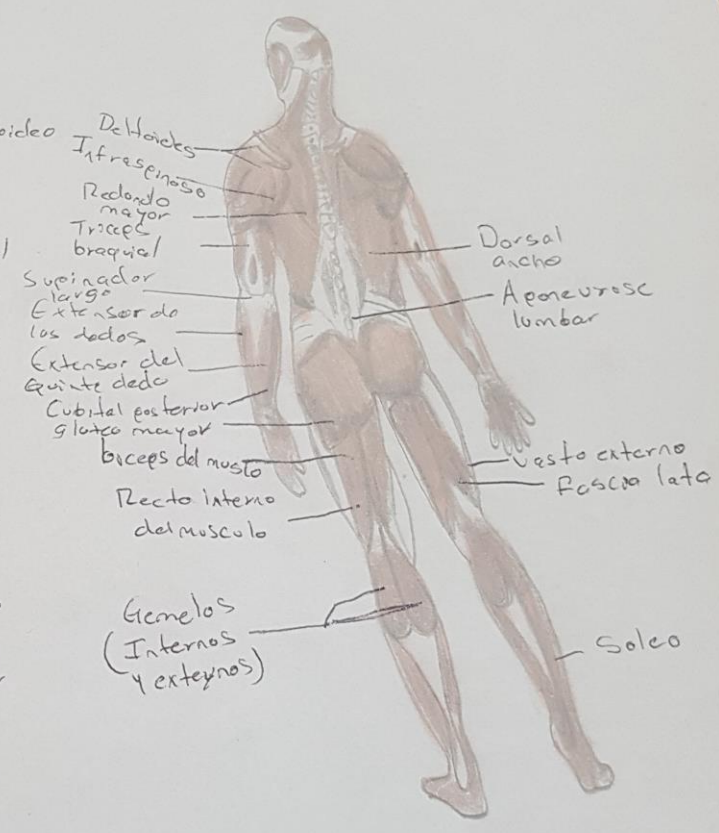 oideo
Deltoides
Infraspinoso
Redondo
mayor
Triceps
braquial
)
Supinador
largo
Extensor de
los dedos
Extensor del
Quinte dedo
Cubital posterior
gluteo mayor
biceps del muslo
Recto interno
del musculo
Gemelos
(Internos
y externos)
Dorsal
ancho
Aponeurose
lumbar
vasto externo
Fascia lata
Soleo